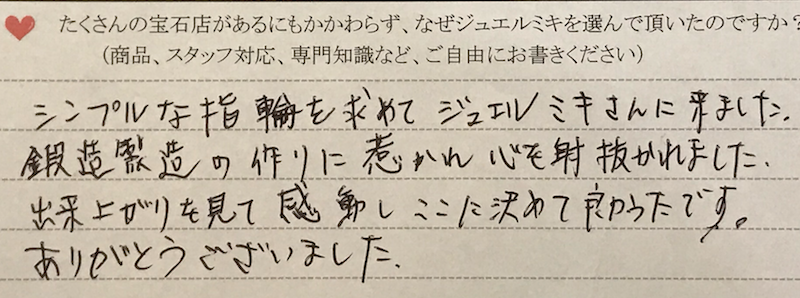 たくさんの宝石店があるにもかかわらず、なぜジュエルミキを選んで頂いたのですか?
(商品、スタッフ対応、専門知識など、ご自由にお書きください)
シンプルな指輪を求めてジュエルミキさんに来ました.
鍛造製造の作りに惹かれ心を射抜かれました.
出来上がりを見て感動しここに決めて良かったです。
ありがとうございました.